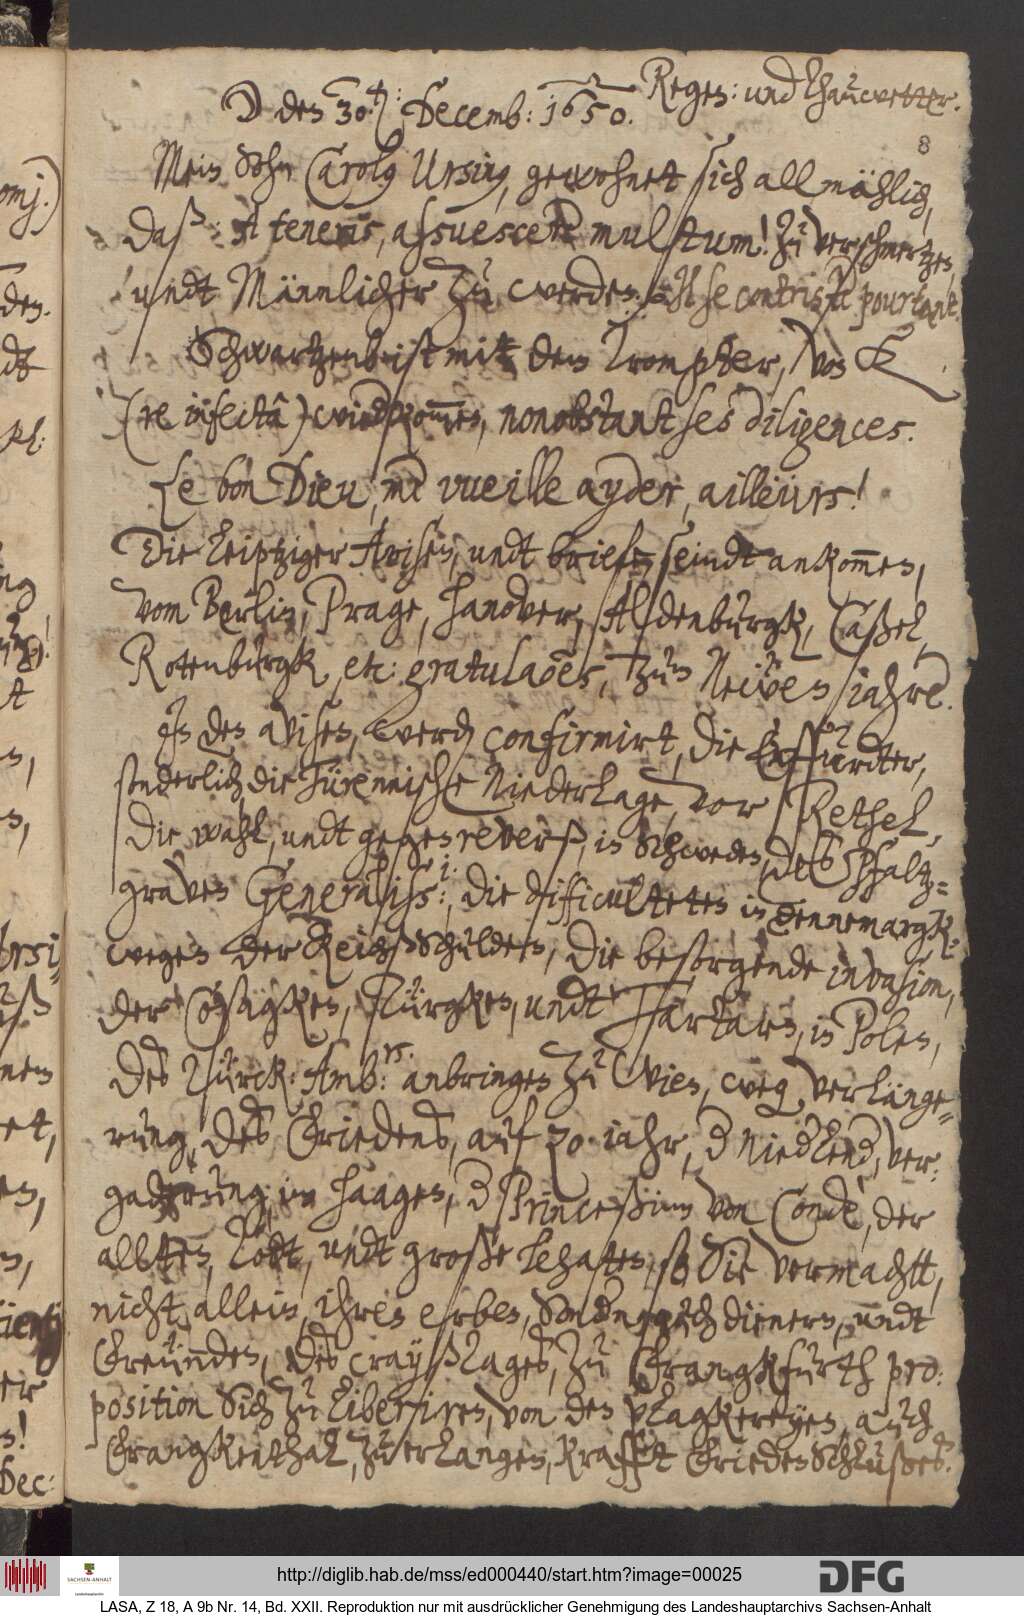 ☽ den 30.ten: Decemb: 1650. Regen: und thauwetter.
8
Mein Sohn Carolus Ursinus, gewohnet sich allmählich,
daß: A teneris, assuescere multum! zu verschmertzen
undt Männlicher zu werden. Il se contriste pourtant.
Schwartzenb: ist mit dem Trompter, von E
(re infectâ) wiedkommen, nonobstant ses diligences.
Le bon Dieu, me vueille ayder, ailleurs!
Die Leiptziger Avisen, undt briefe seindt ankommen,
vom Berlin, Prage, Hanover, Altdenburgk, Caßel,
Rotenburgk, etc: gratulaoes, zum Neẅen iahre.
In den avisen, werden confirmirt, die
sonderlich die Türennische Niederlage, vor Rethel,
die wahl, undt gegenreverß, in Schweden, des Pfaltz-
graven Generaliss:i:, die difficulteten in Dennemargk-
wegen der Reichßschulden, die besorgende invasion,
der Cosagken, Türgken, undt Tartarn, in Polen,
des Türck: Amb:rs. anbringen zu Wien, weg verlänge-
rung, des Friedens, auf 20 iahr, d Niedlend, ver-
gaderung, im Haagen, d Princeßinn von Condè, der
allten, Todt, undt große lehaften, so Sie vermachtt,
nicht allein, ihren erben, Sondern auch dienern, undt
Freünden, des crayßtages, zu Frangkfurth pro-
position Sich zu liberiren, von den plagkereyen, auch
Frangkenthal, zu erlangen, krafft Friedenschlußes.
omj.)
den.
dt
ng
t
n,
Ursi-
uß
nem
et,
en,
er
n!
Dec:
SACHSEN-ANHALT
http://diglib.hab.de/mss/ed000440/start.htm?image=00025
DFG
LASA, Z 18, A 9b Nr. 14, Bd. XXII. Reproduktion nur mit ausdrücklicher Genehmigung des Landeshauptarchivs Sachsen-Anhalt